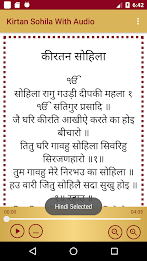 6:42
Kirtan Sohila With Audio
कीरतन सोहिला
ੴ
सोहिला रागु गउड़ी दीपकी महला १
ੴ सतिगुर प्रसादि ॥
जै घरि कीरति आखीऐ करते का होइ
बीचारो ॥
तितु घरि गावहु सोहिला सिवरिहु
सिरजणहारो ॥१॥
तुम गावहु मेरे निरभउ का सोहिला ॥
हउ वारी जितु सोहिलै सदा सुखु होइ ॥
Hindi Selected
00:00
04:05